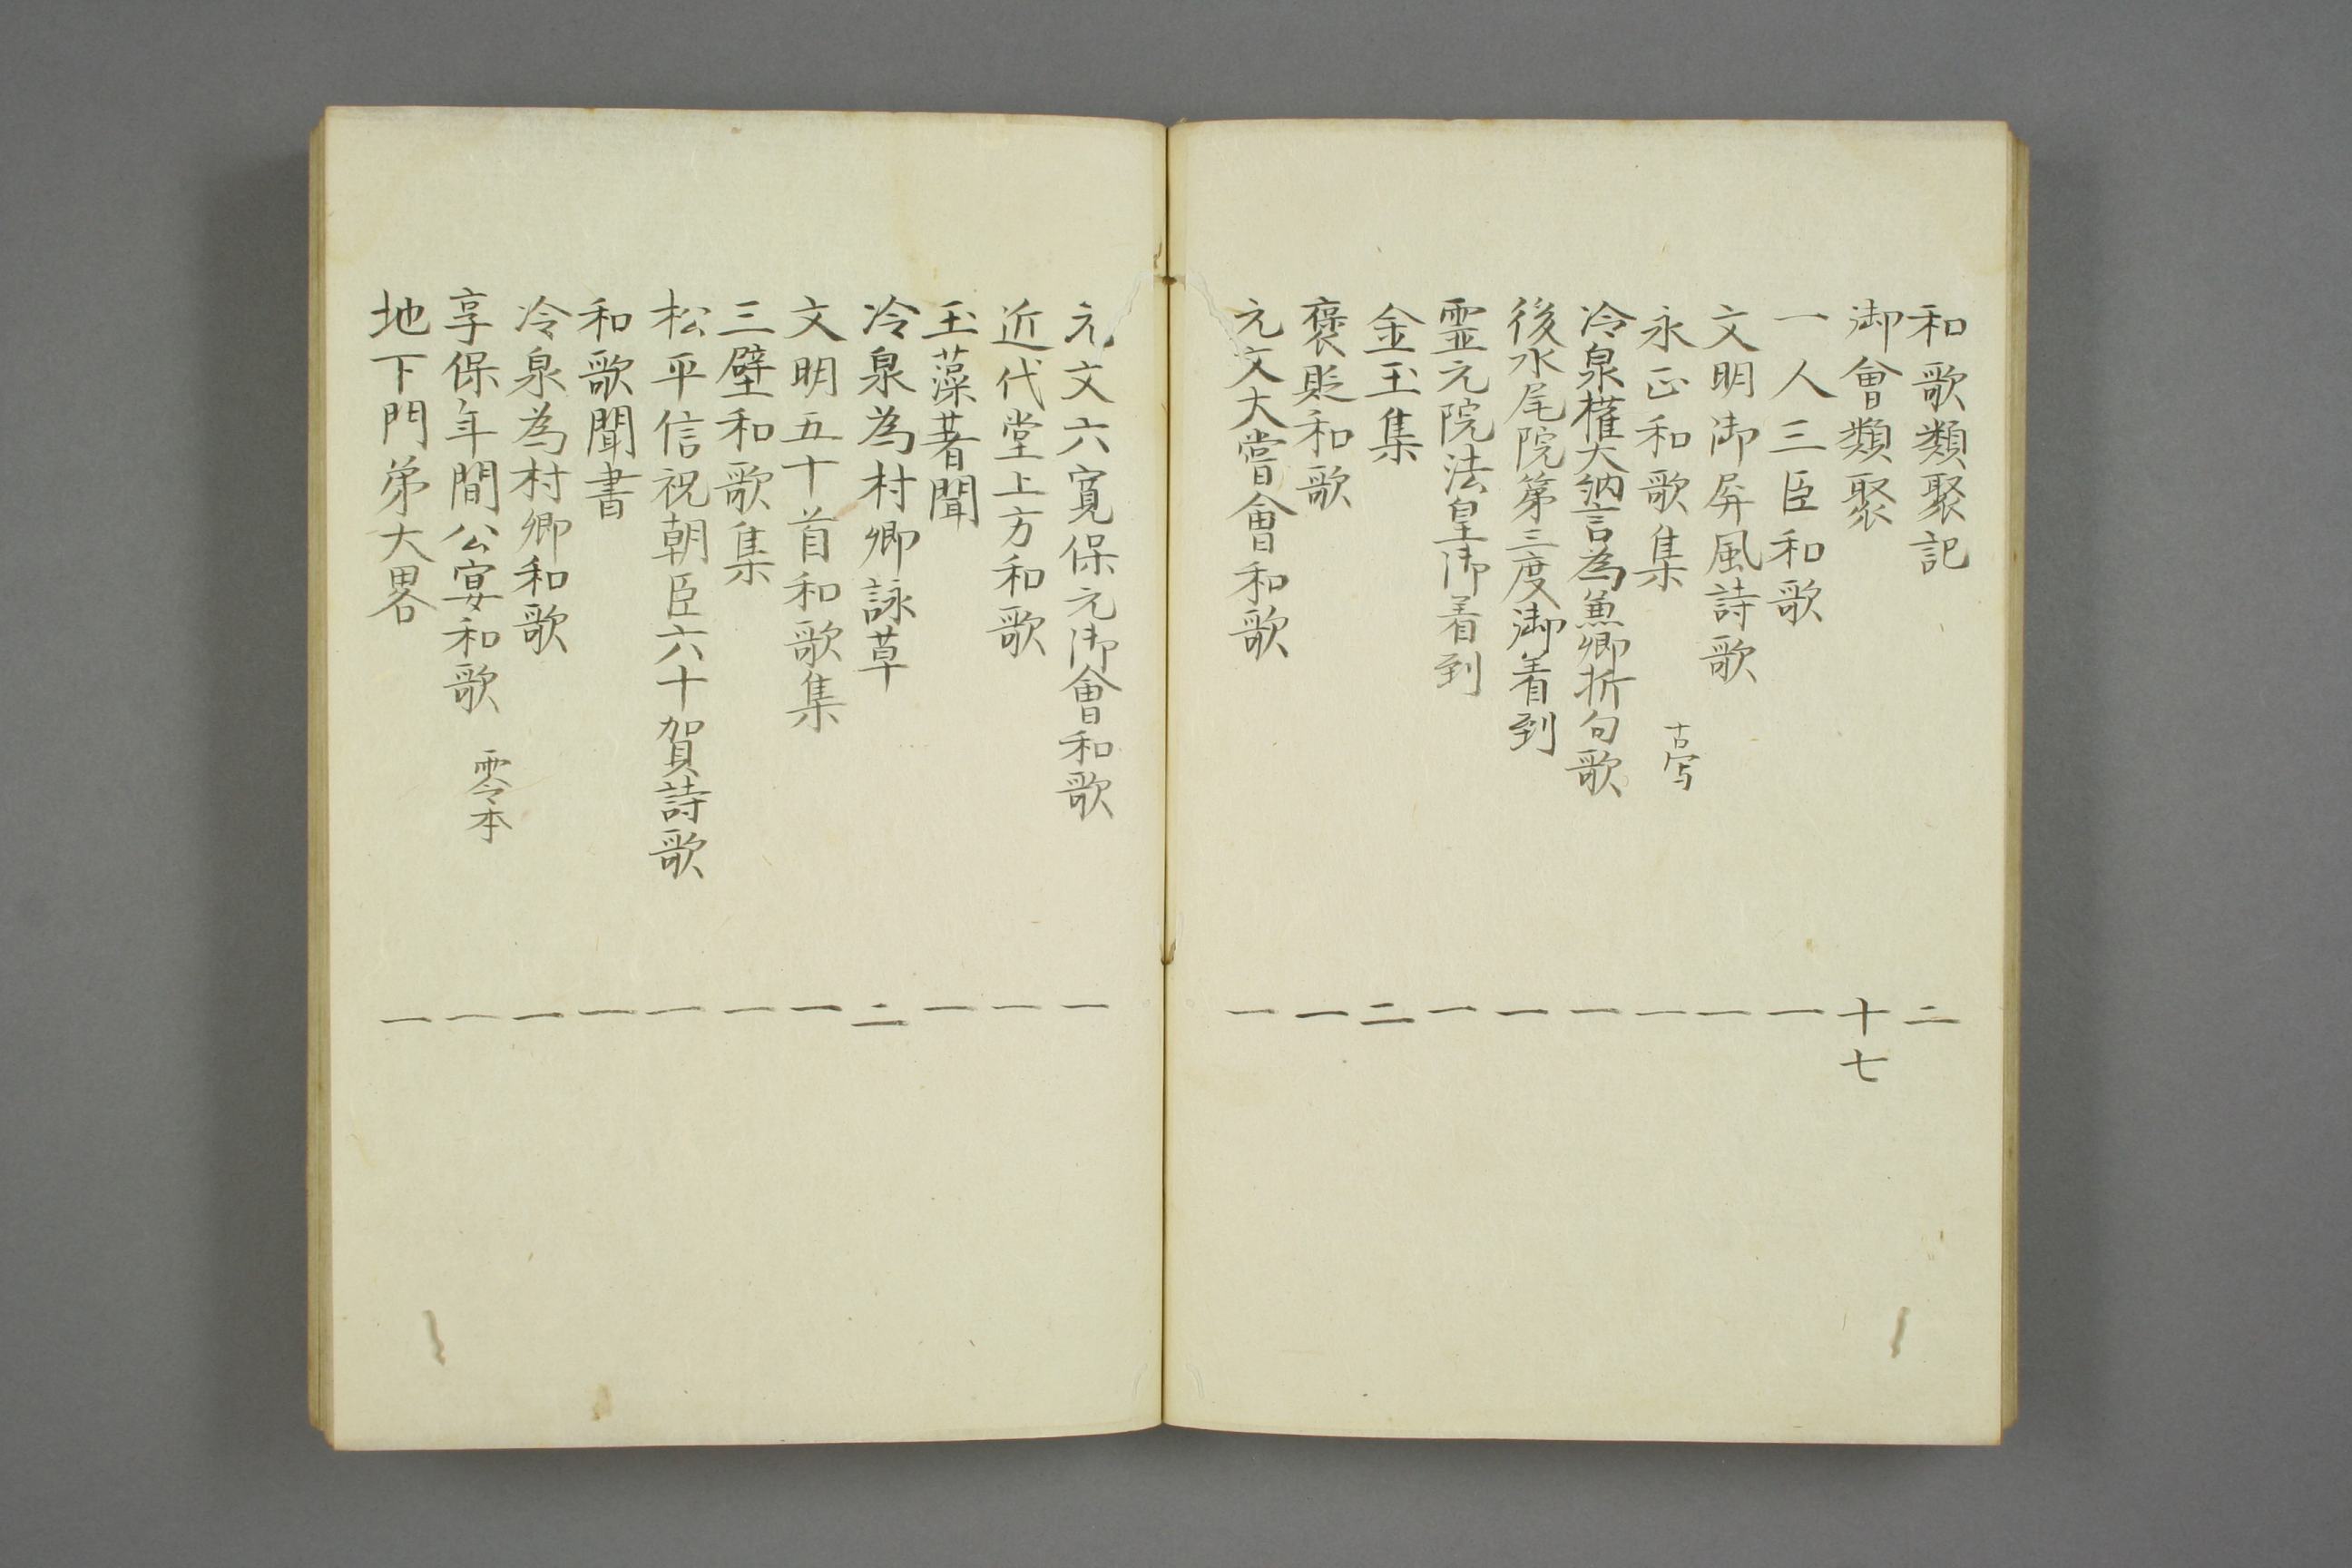 和歌類聚記 二
御會類聚 十七
一人三臣和歌 一
文明御屏風詩歌 一
永正和歌集 古写 一
冷泉權大納言為魚卿折句歌 一
後水尾院第三度御着到 一
霊元院法皇御着到 一
金玉集 二
褒貶和歌 一
元文大嘗會和歌 一
元文六寛保元御會和歌 一
近代堂上方和歌 一
玉藻著聞 一
冷泉為村卿詠草 二
文明五十首和歌集 一
三壁和歌集 一
松平信祝朝臣六十賀詩歌 一
和歌聞書 一
冷泉為村卿和歌 一
享保年間公宴和歌 零本 一
地下門弟大畧 一